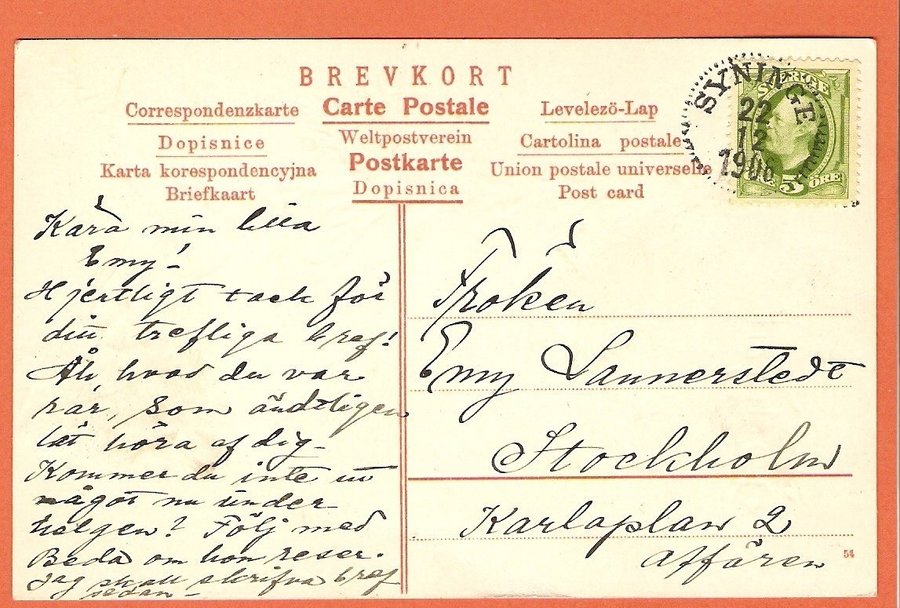 BREVKORT
Correspondenzkarte Carte Postale Levelező-Lap
Dopisnice Weltpostverein Cartolina postale
Karta korespondencyjna Postkarte Union postale universelle
Briefkaart Dopisnica Post card
SVERIGE
5 ÖRE
SYNINGE
22
12
1906
Kära min lilla
Emy!
Hjertligt tack för
ditt trefliga bref!
Åh, hvad du var
rar, som ändtligen
lät höra af dig.
Kommer du inte ut
något nu under
helgen? Följ med
Beda om hon reser.
Jag skall skrifva bref
sedan
Fröken
Emy Lannerstedt
Stockholm
Karlaplan 2
Affären
54